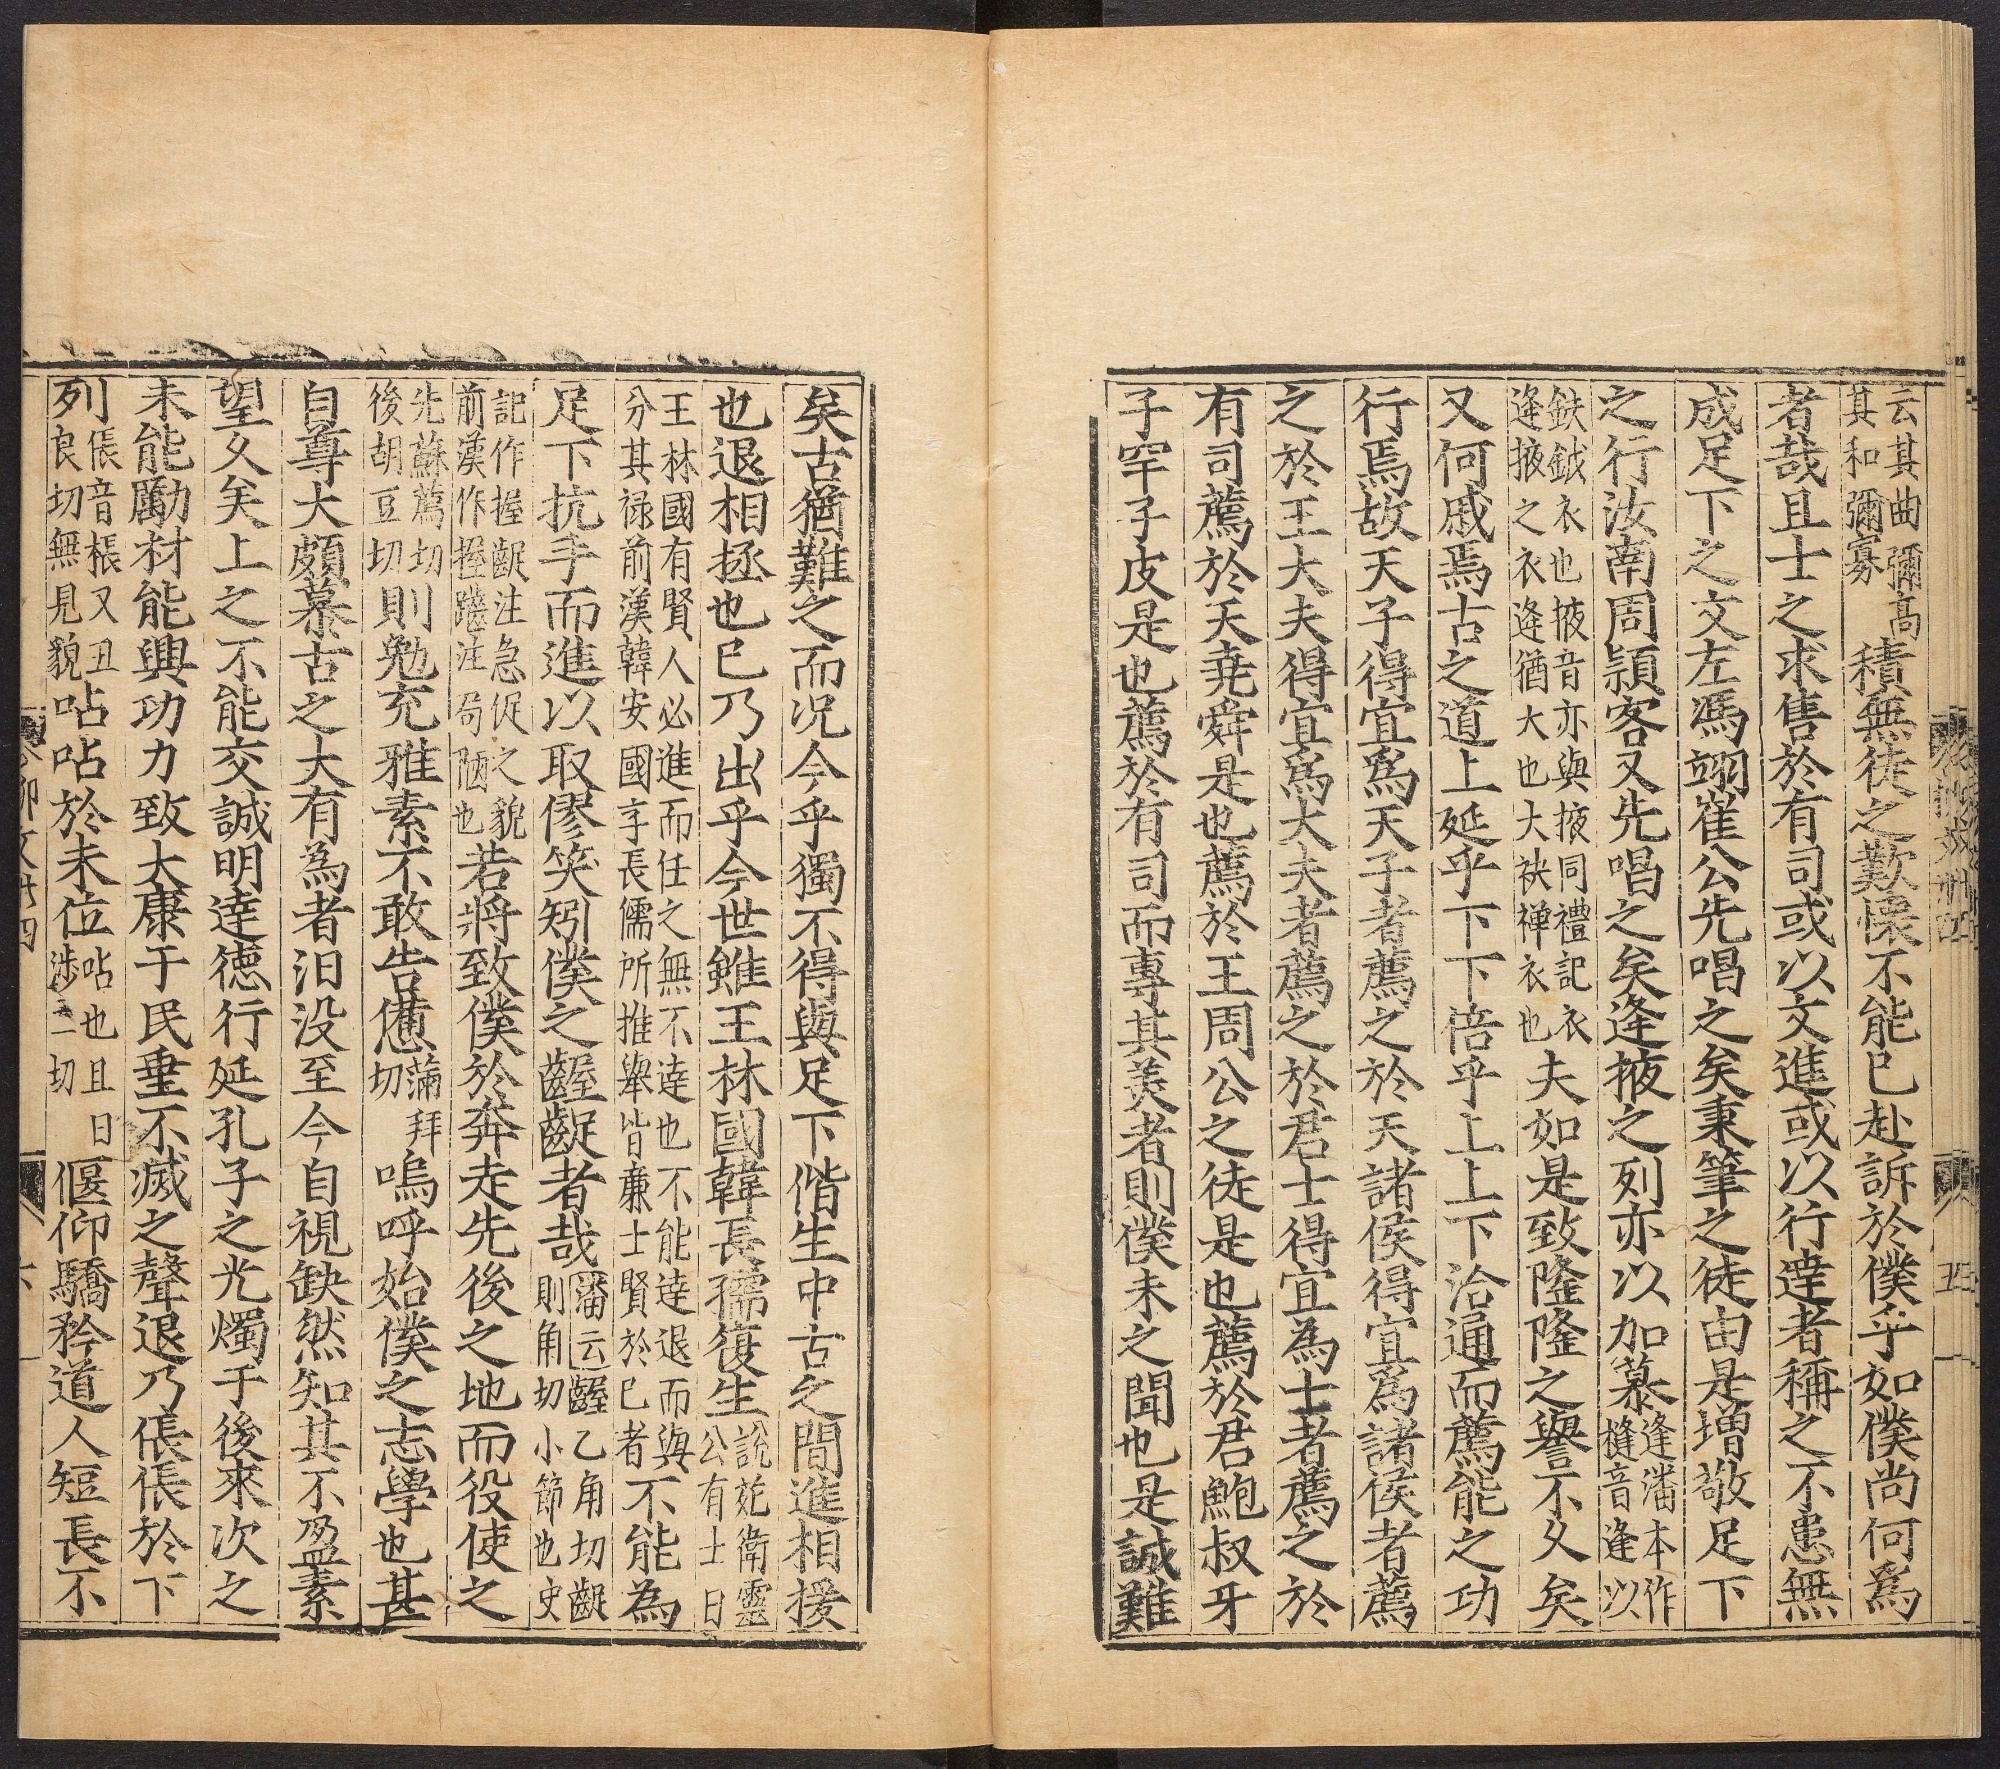 云其曲彌高其和彌寡積無徒之歎懷不能已赴訴於僕乎如僕尚何爲
者哉且士之求售於有司或以文進或以行達者稱之不患無
成足下之文左馮翊崔公先唱之矣秉筆之徒由是增敬足下
之行汝南周頴客又先唱之矣逢掖之列亦以加慕逢潘本作縫音逢以
鈇鉞衣也掖音亦與掖同禮記衣逢掖之衣逢猶大也大袂襌衣也夫如是致隆隆之譽不乆矣
又何戚焉古之道上延乎下下倍乎上上下洽通而薦能之功
行焉故天子得宜爲天子者薦之於天諸侯得宜爲諸侯者薦
之於王大夫得宜爲大夫者薦之於君士得宜為士者薦之於
有司薦於天堯舜是也薦於王周公之徒是也薦於君鮑叔牙
子罕子皮是也薦於有司而專其美者則僕未之聞也是誠難
矣古猶難之而况今乎獨不得與足下偕生中古之間進相援
也退相拯也已乃出乎今世雖王林國韓長孺復生說苑衛靈公有士曰
王林國有賢人必進而任之無不達也不能達退而與分其禄前漢韓安國字長儒所推舉皆亷士賢於已者不能為
足下抗手而進以取僇笑矧僕之齷齪者哉潘云齷乙角切齪則角切小節也史
記作握齪注急促之貌前漢作握注局陿也若將致僕於奔走先後之地而役使之
先蘇薦切後胡豆切則勉充雅素不敢告憊蒲拜切嗚呼始僕之志學也甚
自尊大頗慕古之大有為者汩没至今自視缺然知其不盈素
望乆矣上之不能交誠明達德行延孔子之光燭于後來次之
未能勵材能興功力致大康于民垂不滅之聲退乃倀倀於下
列倀音棖又丑良切無見貌呫呫於末位呫也且曰涉二切偃仰驕矜道人短長不